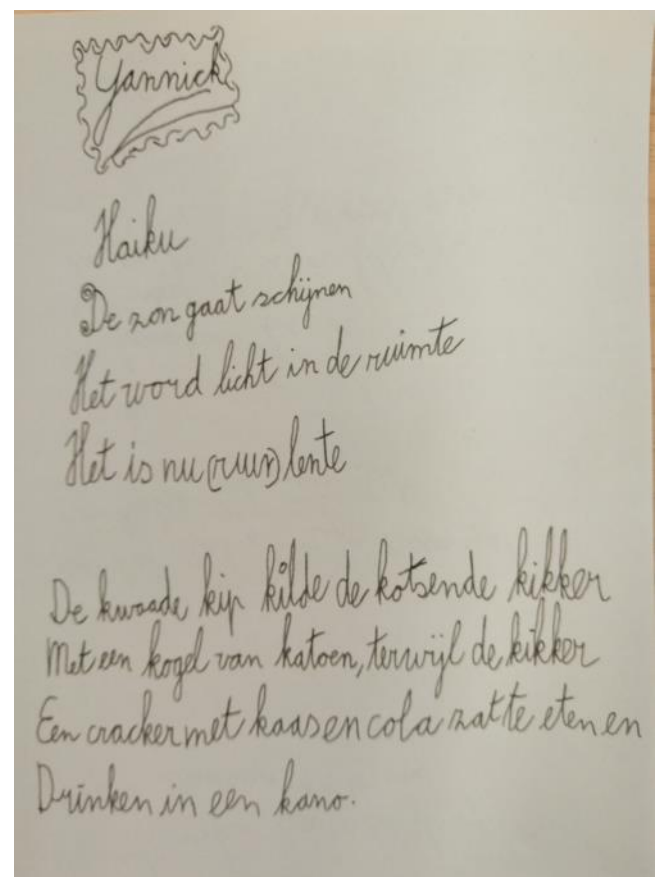 Yannick
Haiku
De zon gaat schijnen
Het word licht in de ruimte
Het is nu (ruur) lente
De kwaade kip kilde de kotsende kikker
Met een kogel van katoen, terwijl de kikker
Een cracker met kaas en cola zat te eten en
Drinken in een kano.